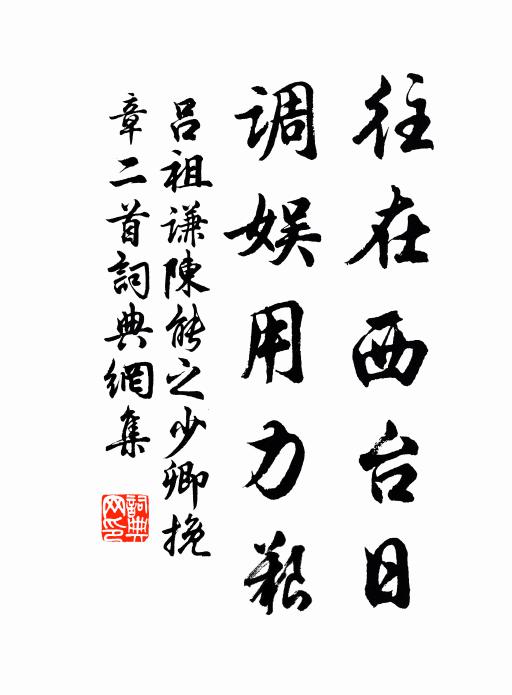 往在西台日
调娱用力艰
吕祖谦陳能之少卿挽
章二首詞典網集
詞典网印